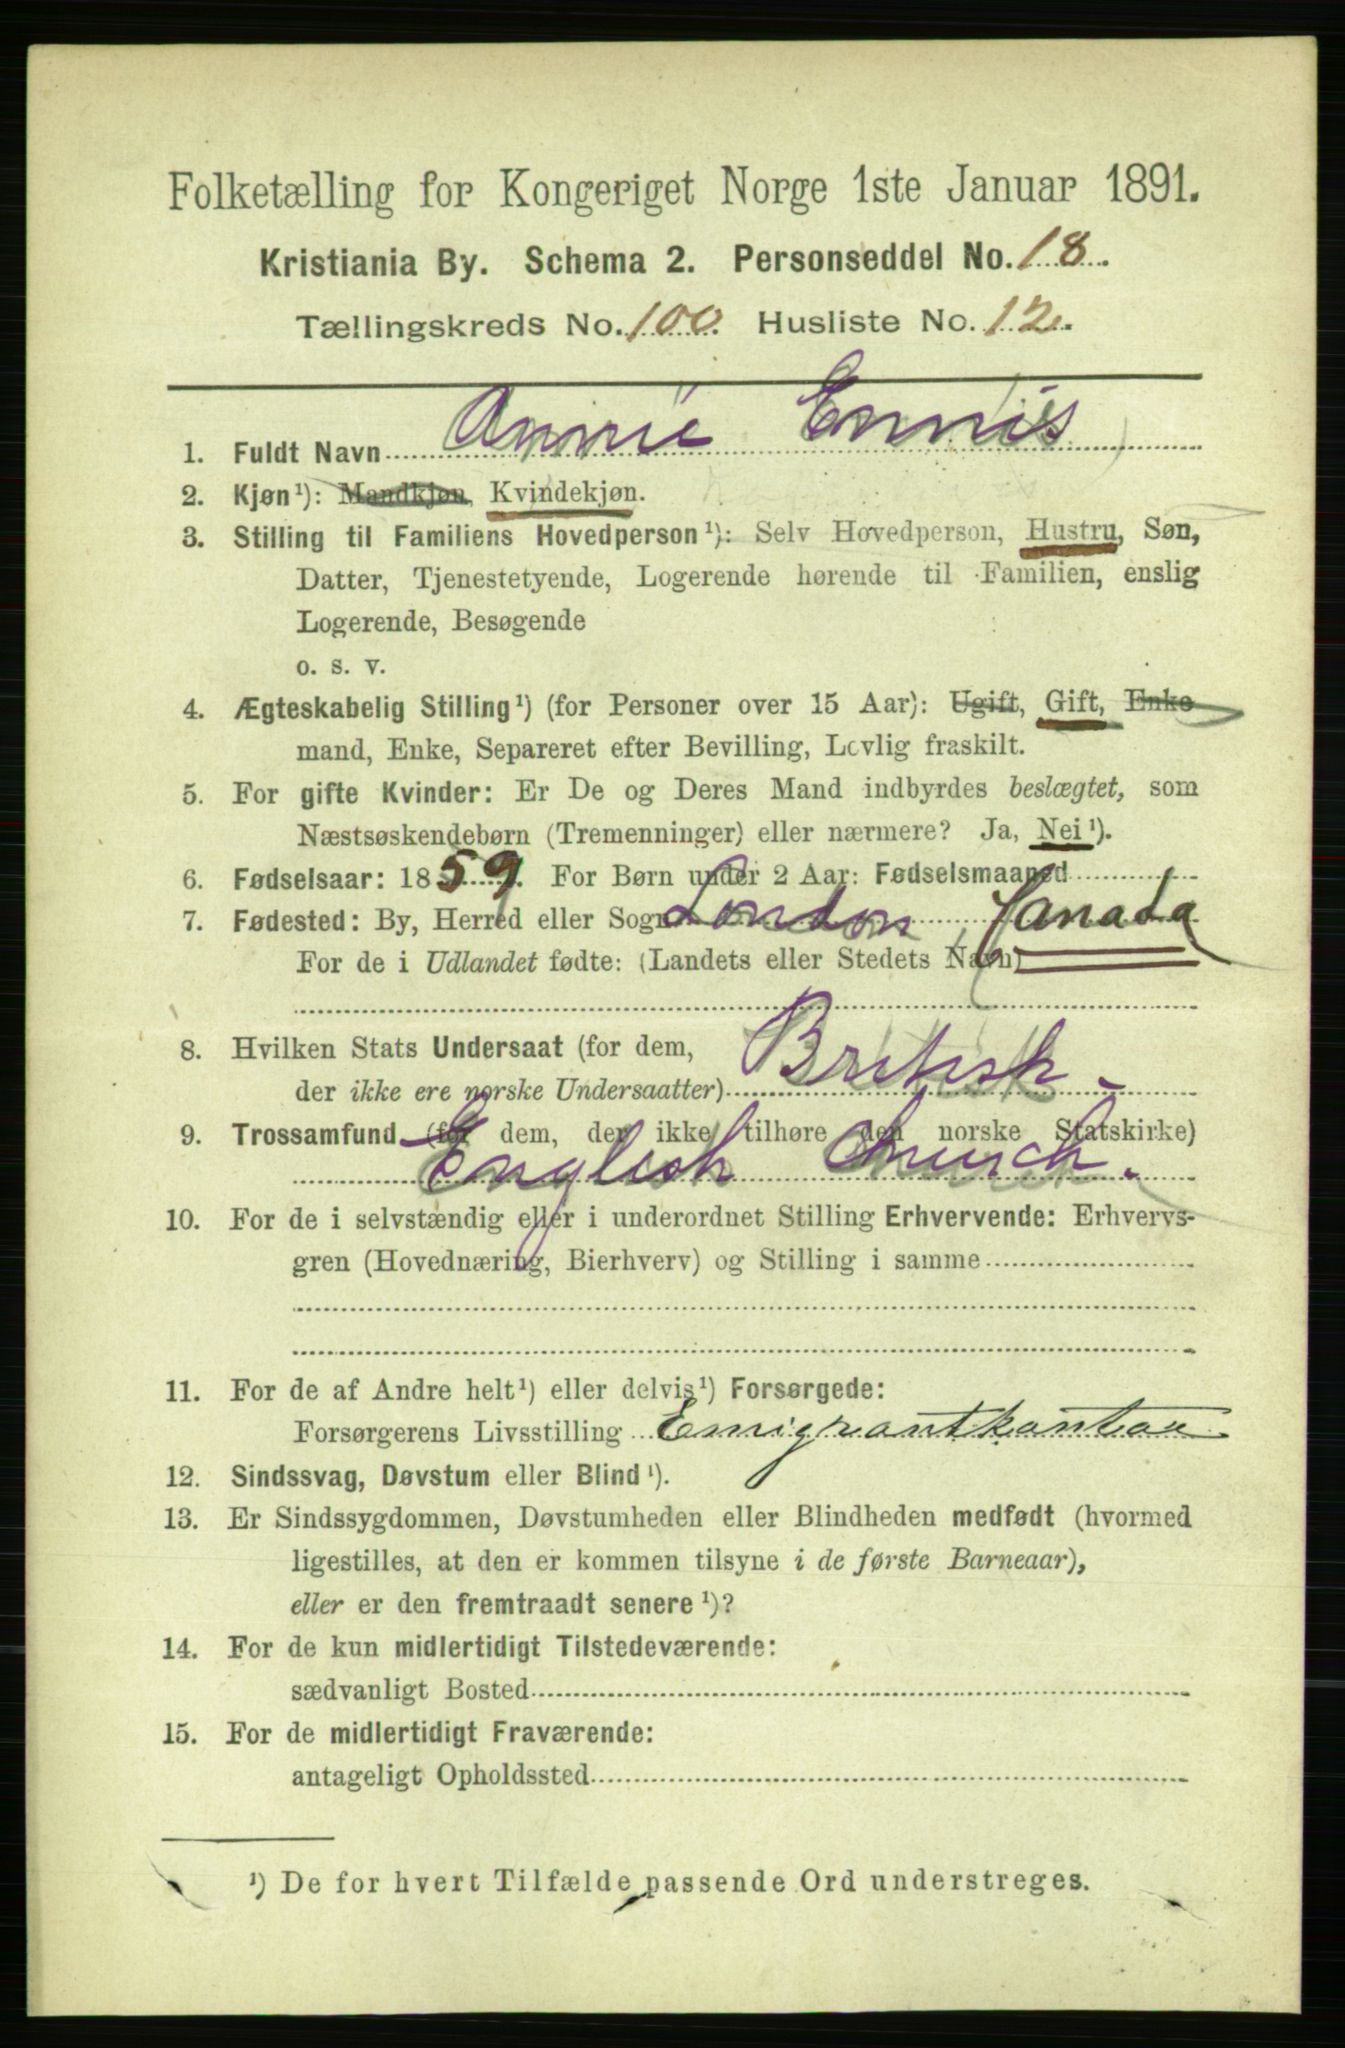 Folketælling for Kongeriget Norge 1ste Januar 1891.
Kristiania By. Schema 2. Personseddel No. 18.
Tællingskreds No. 100. Husliste No. 12.
1. Fuldt Navn Annie Ennis
2. Kjøn¹): Mandkjøn, Kvindekjøn.
3. Stilling til Familiens Hovedperson¹): Selv Hovedperson, Hustru, Søn,
Datter, Tjenestetyende, Logerende hørende til Familien, enslig
Logerende, Besøgende
o. s. v.
4. Ægteskabelig Stilling¹) (for Personer over 15 Aar): Ugift, Gift, Enke
mand, Enke, Separeret efter Bevilling, Lovlig fraskilt.
5. For gifte Kvinder: Er De og Deres Mand indbyrdes beslægtet, som
Næstsøskendebørn (Tremenninger) eller nærmere? Ja, Nei¹).
6. Fødselsaar: 1859. For Børn under 2 Aar: Fødselsmaaned
7. Fødested: By, Herred eller Sogn London, Canada
For de i Udlandet fødte: (Landets eller Stedets Navn)
8. Hvilken Stats Undersaat (for dem,
der ikke ere norske Undersaatter) British -
9. Trossamfund (for dem, der ikke tilhøre den norske Statskirke)
English Church.
10. For de i selvstændig eller i underordnet Stilling Erhvervende: Erhvervs-
gren (Hovednæring, Bierhverv) og Stilling i samme
11. For de af Andre helt¹) eller delvis¹) Forsørgede:
Forsørgerens Livsstilling Emigrantkontor
12. Sindssvag, Døvstum eller Blind¹).
13. Er Sindssygdommen, Døvstumheden eller Blindheden medfødt (hvormed
ligestilles, at den er kommen tilsyne i de første Barneaar),
eller er den fremtraadt senere¹)?
14. For de kun midlertidigt Tilstedeværende:
sædvanligt Bosted
15. For de midlertidigt Fraværende:
antageligt Opholdssted
¹) De for hvert Tilfælde passende Ord understreges.